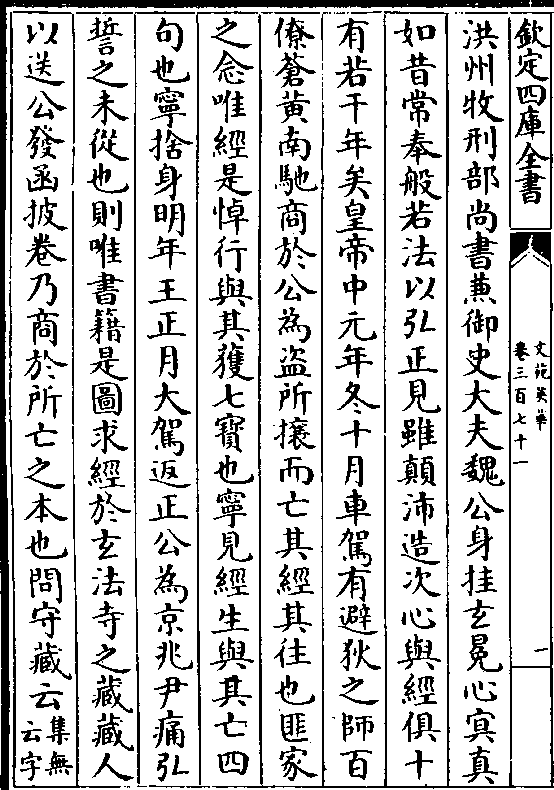 欽定四庫全書
文苑英華
卷三百七十一
一
洪州牧刑部尚書兼御史大夫魏公身挂玄冕心㝠真
如昔常奉般若法以弘正見雖顛沛造次心與經俱十
有若干年矣皇帝中元年冬十月車駕有避狄之師百
僚蒼黄南馳商於公為盗所攘而亡其經其往也匪家
之念唯經是悼行與其獲七寳也寧見經生與其亡四
句也寧捨身明年王正月大駕返正公為京兆尹痛弘
誓之未從也則唯書籍是圖求經於玄法寺之藏藏人
以送公發函披卷乃商於所亡之本也問守藏云集無
云字